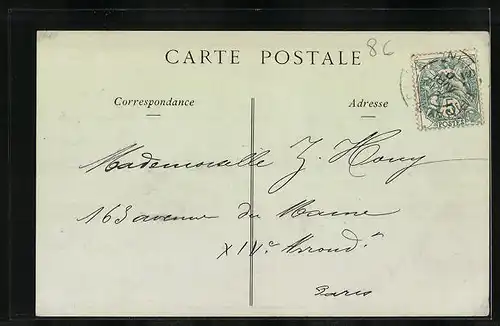 CARTE POSTALE
86
Correspondance
Adresse
5
POSTES
Mademoiselle Z. Houy
163 avenue du Maine
XIVe Arrondt
Paris